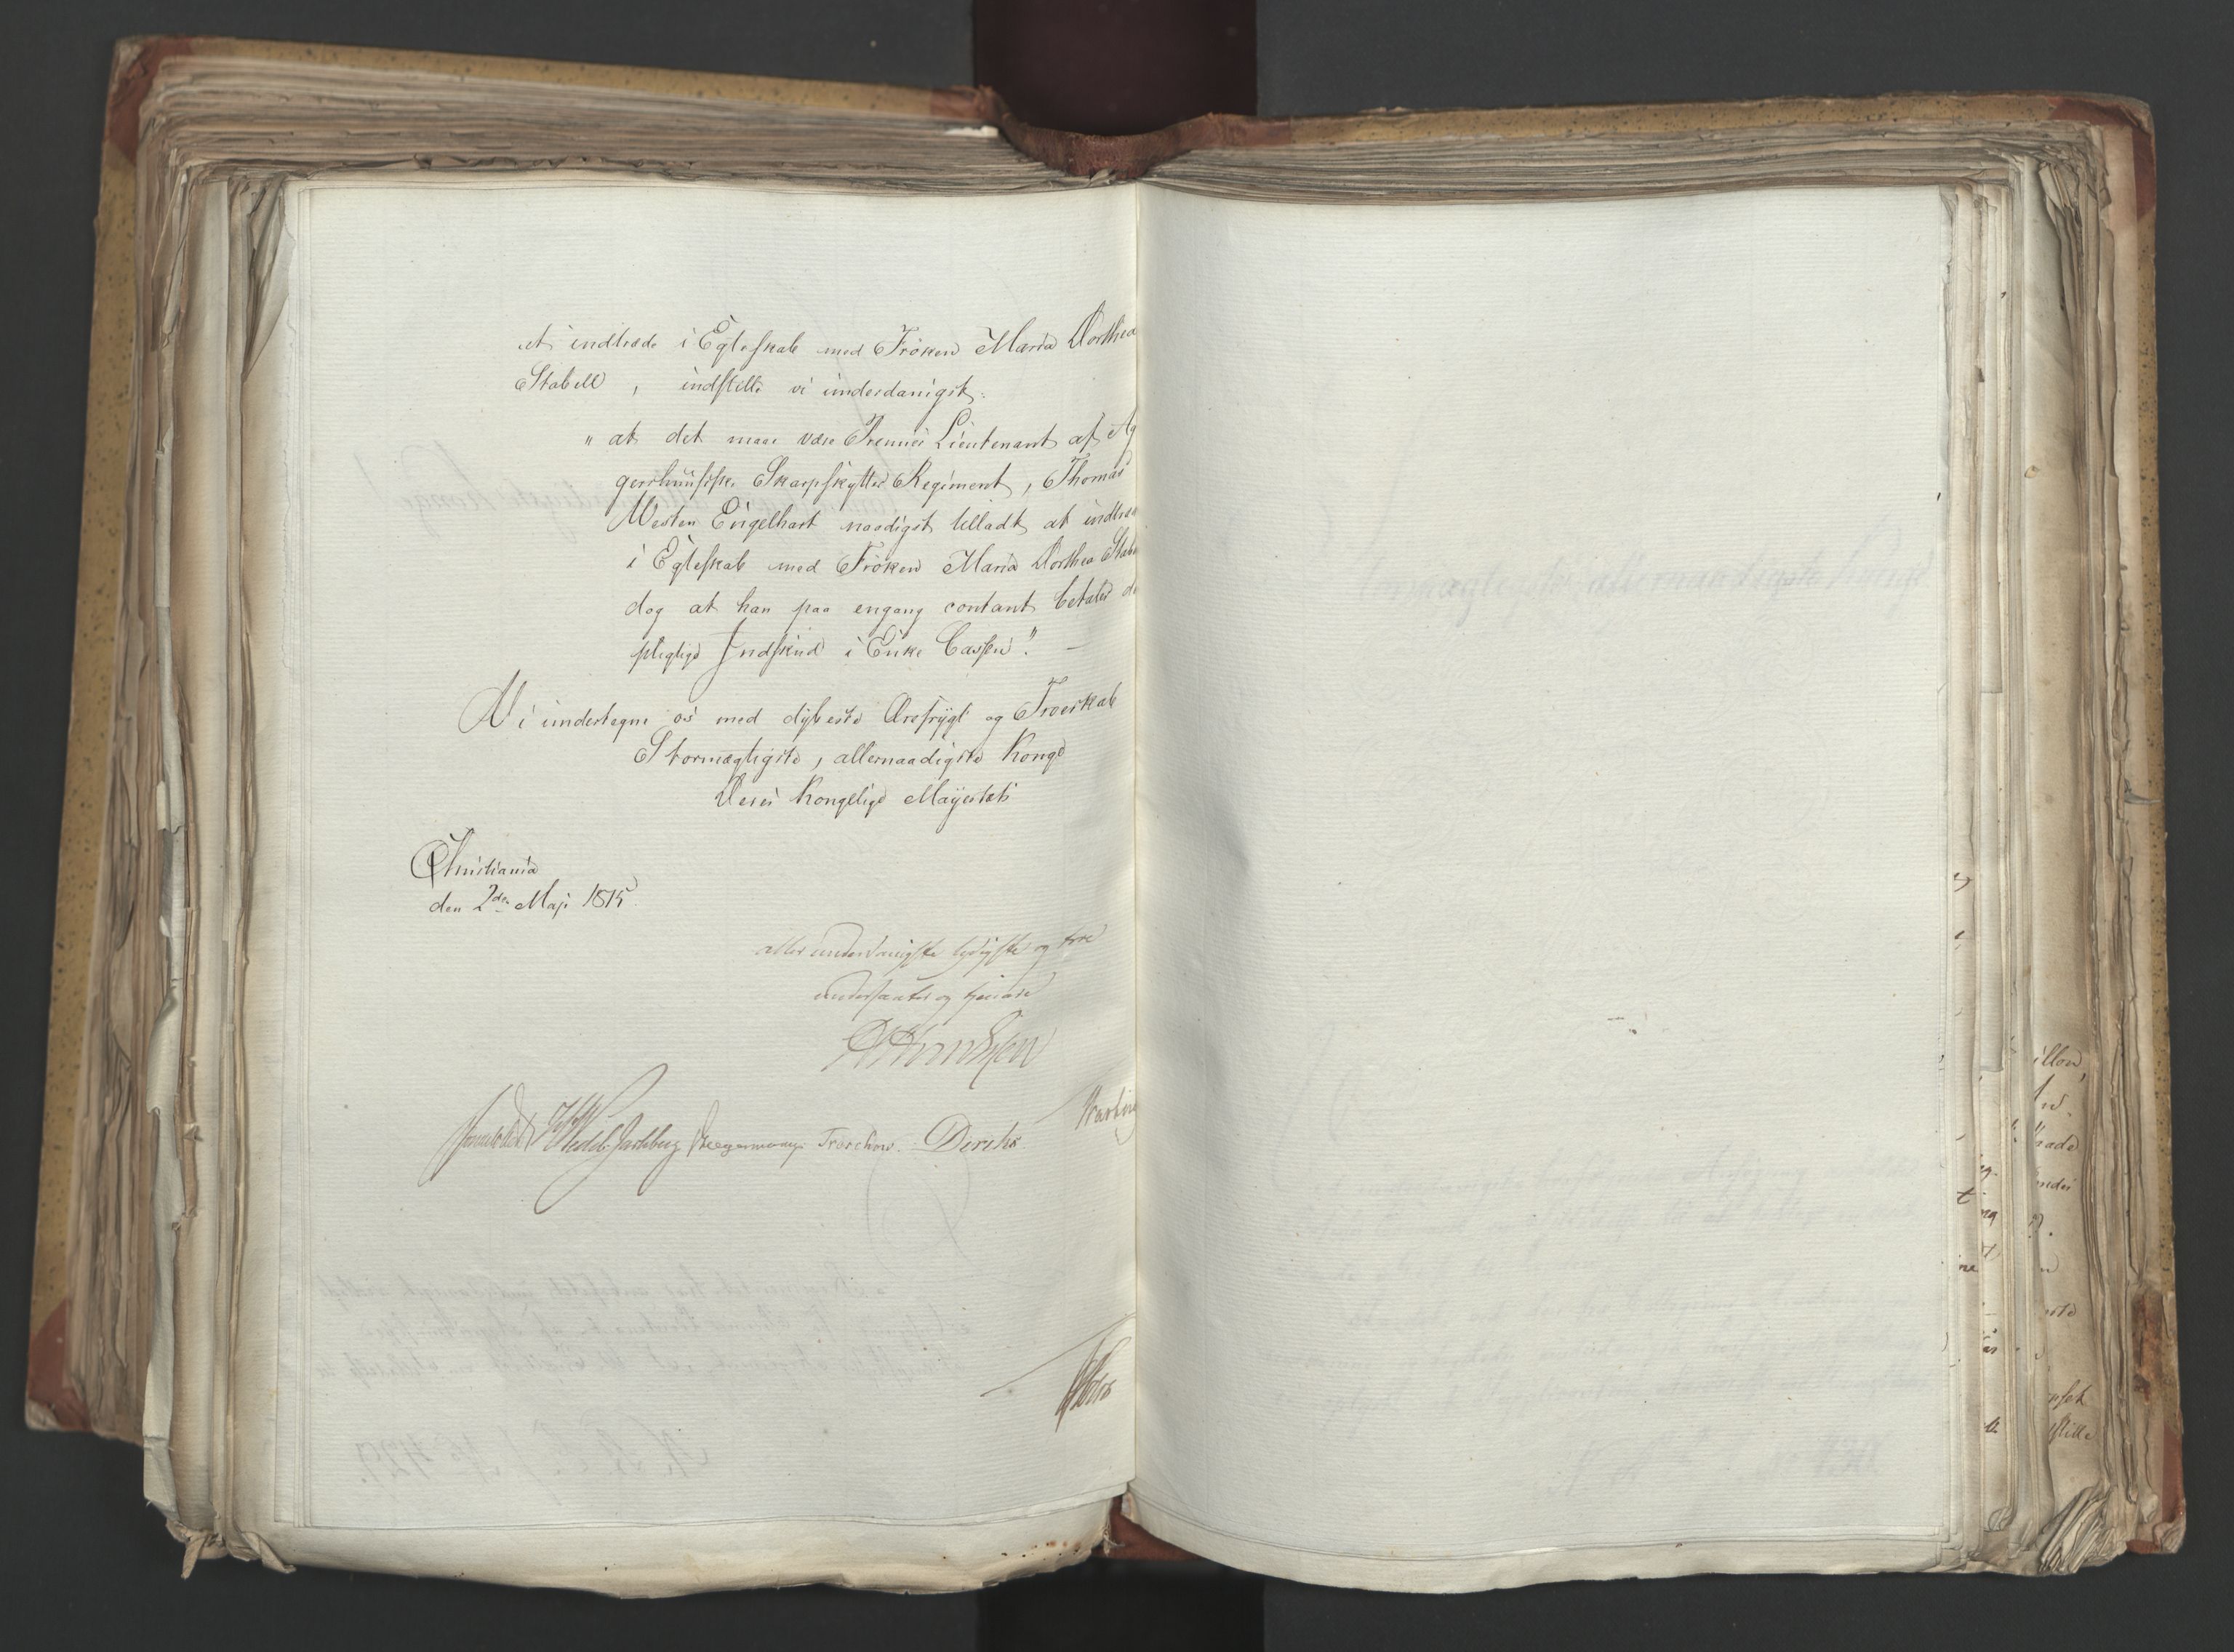 at indtræde i Egteskab med Frøken Maria Dorthea
Stabell, indstille vi underdanigst:
" at det maae være Premier Lieutenant af Ag
gershuusiske Skarpskytter Regiment, Thomas
Westen Engelhart naadigst tilladt at indtræ
i Egteskab med Frøken Maria Dorthea Stabe
dog at han paa engang contant betaler de
pligtige Indskud i Enke Cassen". —
Vi undertegne os med dybeste Ærefrygt og Troeskab
Stormægtigste, allernaadigste Konge
Deres Kongelige Mayestæts
Christiania
den 2den Maji 1815.
allerunderdanigste lydigste og troe
undersaatter og tjenere
Sommerhielm Wedel Jarlsberg Hegermann Treschow. Diriks